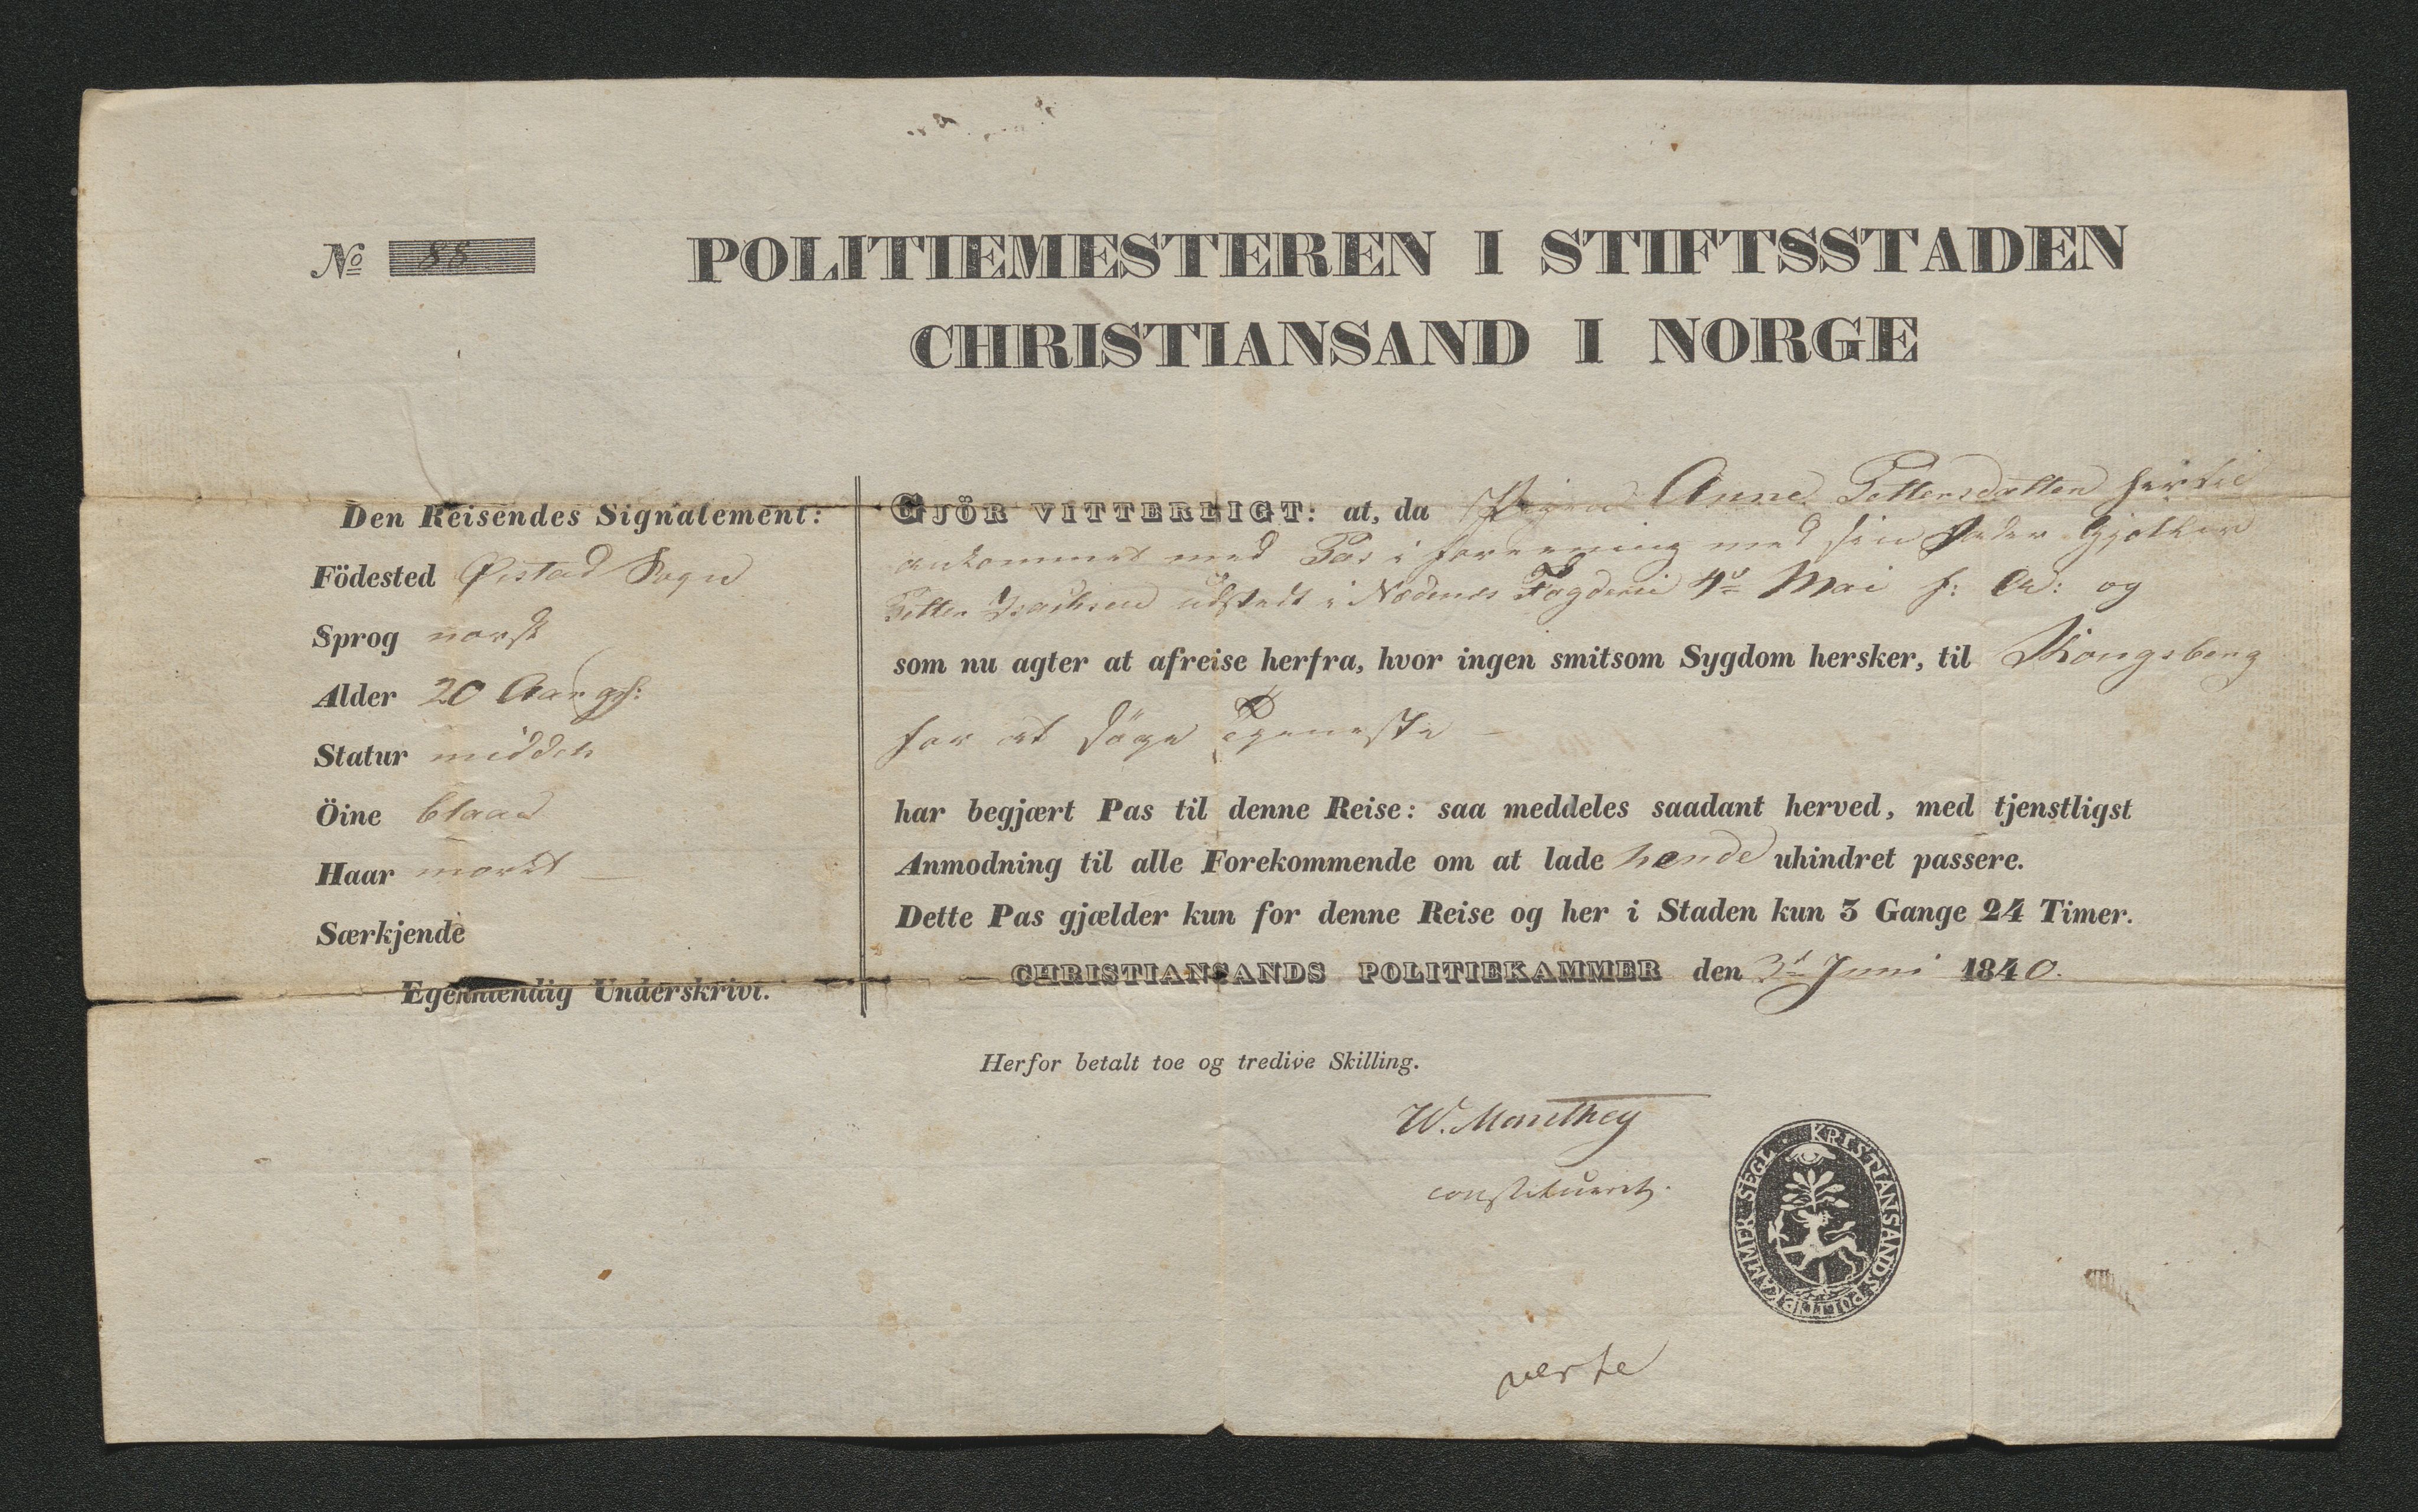 No 88
POLITIEMESTEREN I STIFTSSTADEN
CHRISTIANSAND I NORGE
Den Reisendes Signalement:
Födested Øistad Sogn
Sprog norsk
Alder 20 Aar gl:
Statur middels
Öine blaae
Haar mørkt
Særkjende
Egenhændig Underskrivt.
GJÖR VITTERLIGT: at, da Pigen Anne Pettersdatter hertil
ankommet med Pas i forening med sin Fader
Petter Isachsen udstædt i Nedenes Fogderie 4de Mai h: A: og
som nu agter at afreise herfra, hvor ingen smitsom Sygdom hersker, til Kongsberg
for at söge Tjeneste
har begjært Pas til denne Reise: saa meddeles saadant herved, med tjenstligst
Anmodning til alle Forekommende om at lade hende uhindret passere.
Dette Pas gjælder kun for denne Reise og her i Staden kun 3 Gange 24 Timer.
CHRISTIANSANDS POLITIEKAMMER den 3d Juni 1840.
Herfor betalt toe og tredive Skilling.
W. Monthey
constitueret.
KRISTIANSANDS POLITIEKAMMER SEGL
verte